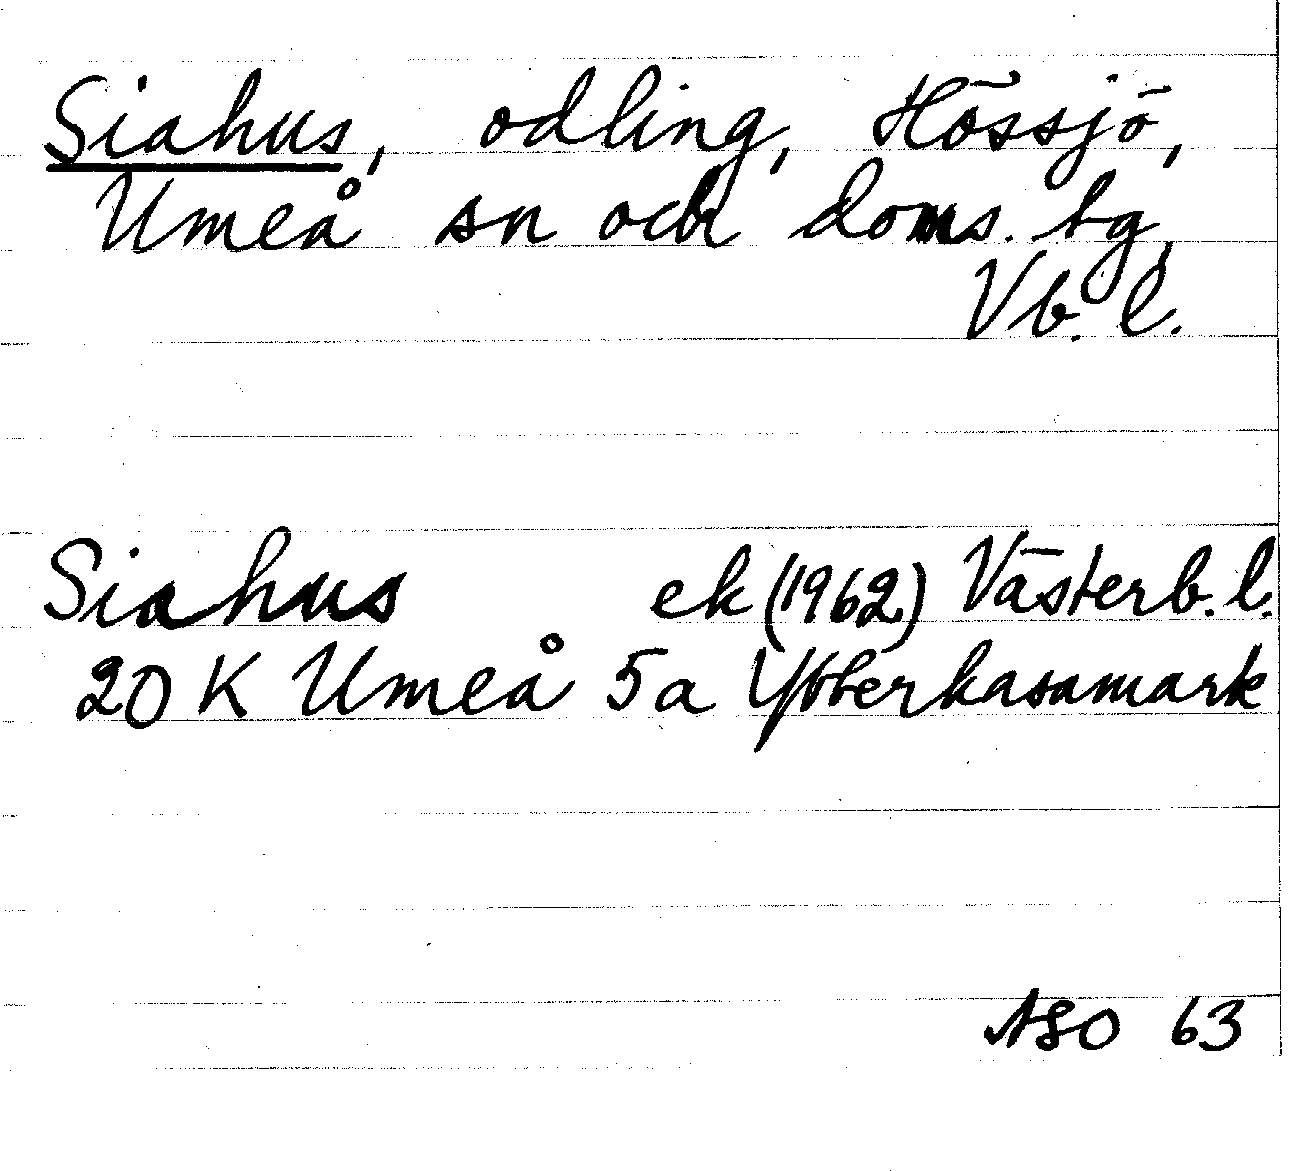 Siahus, odling, Hössjö,
Umeå sn och doms. tg,
Vb. l.
Siahus ek (1962) Västerb. l.
20 K Umeå 5a Ytterkasamark
ASO 63